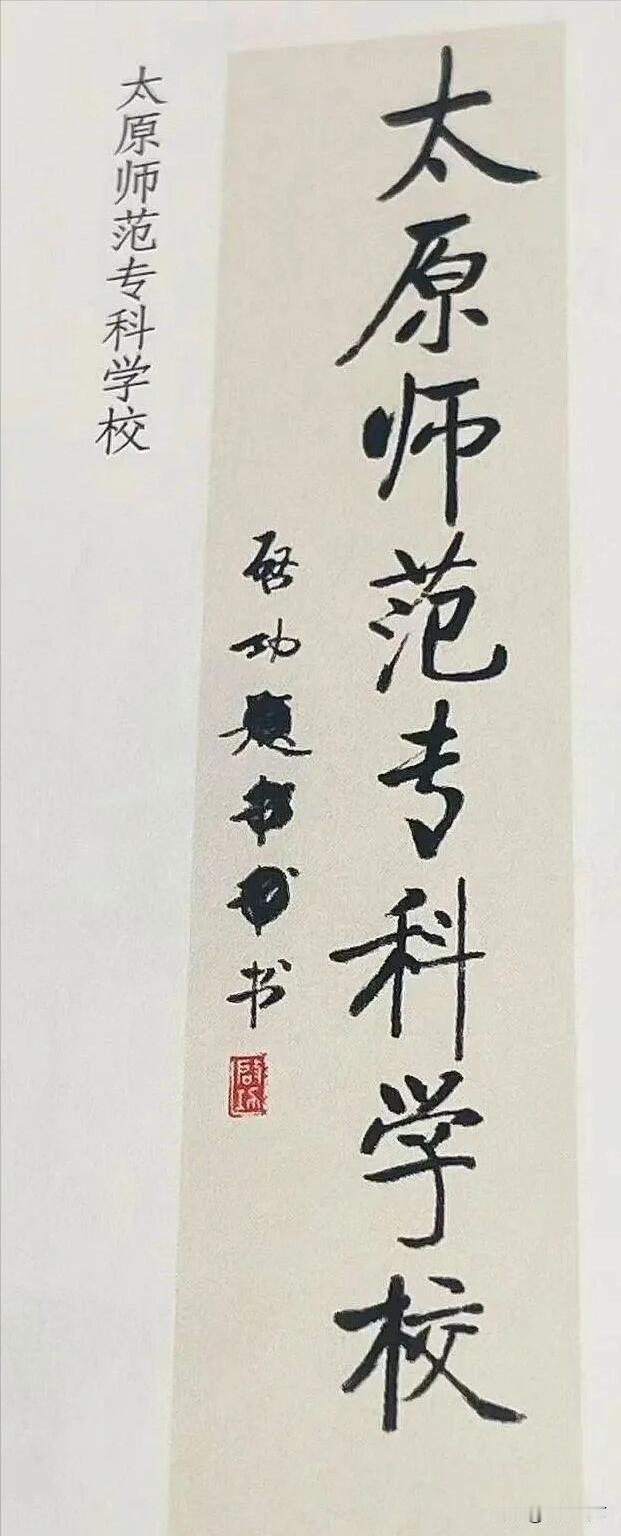 太原师范专科学校
启功题书书书
启功
太原师范专科学校